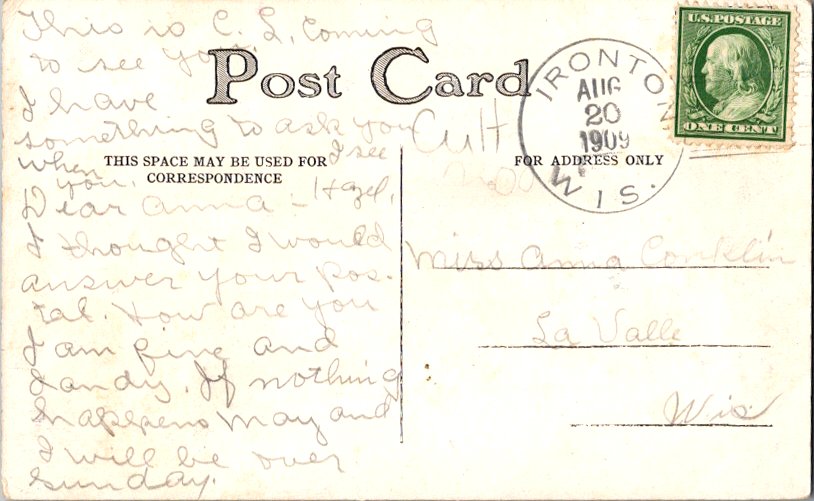 This is C. L. coming
to see you.
I have
something to ask you
when I see
you. Hazel.
Post Card
THIS SPACE MAY BE USED FOR
CORRESPONDENCE
Dear Anna -
I thought I would
answer your pos-
tal. How are you
I am fine and
dandy. If nothing
happens May and
I will be over
Sunday.
FOR ADDRESS ONLY
IRONTON
AUG
20
1909
WIS.
U.S. POSTAGE
ONE CENT
Miss Anna Conklin
La Valle
Wis